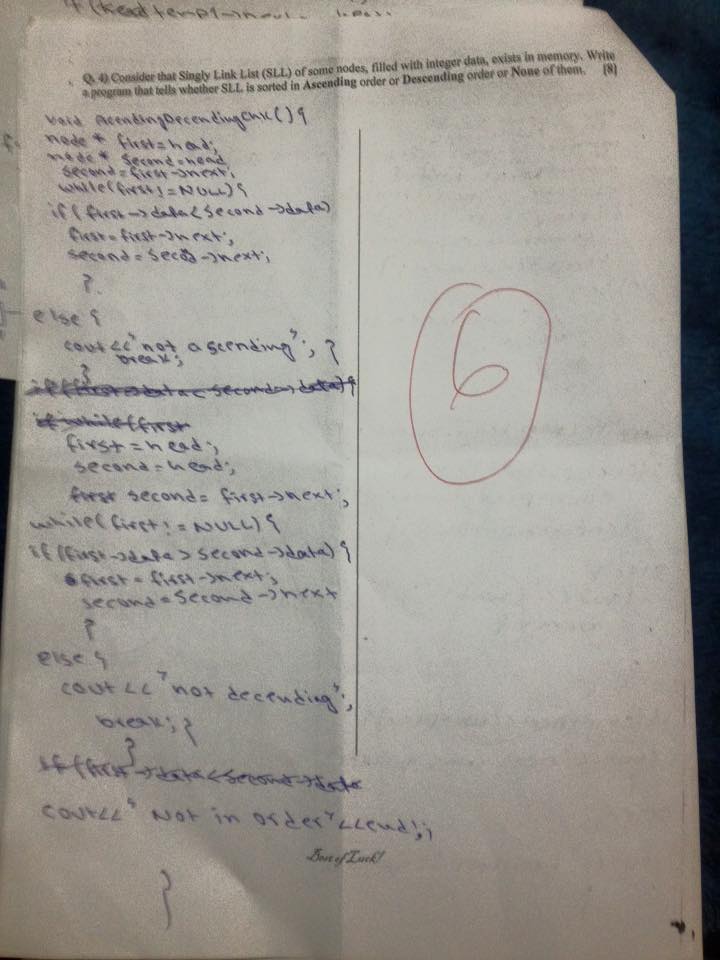 if(head temp1->
Q. 4) Consider that Singly Link List (SLL) of some nodes, filled with integer data, exists in memory. Write
a program that tells whether SLL is sorted in Ascending order or Descending order or None of them. [8]
void AcendingDecendingChk(){
node * first=head;
node * second=head
second=first->next;
while(first!=NULL){
if(first->data<second->data)
first=first->next;
second=secod->next;
}
else {
cout<<"not ascending"; }
break;
}
if(first->data<second->data){
if while(first
first=head;
second=head;
first second=first->next;
while(first!=NULL){
if(first->data>second->data){
first=first->next;
second=second->next
}
else {
cout<<"not decending";
break; }
}
if(first->data<second->data
cout<<"Not in order"<<endl;
Best of Luck!
}
6